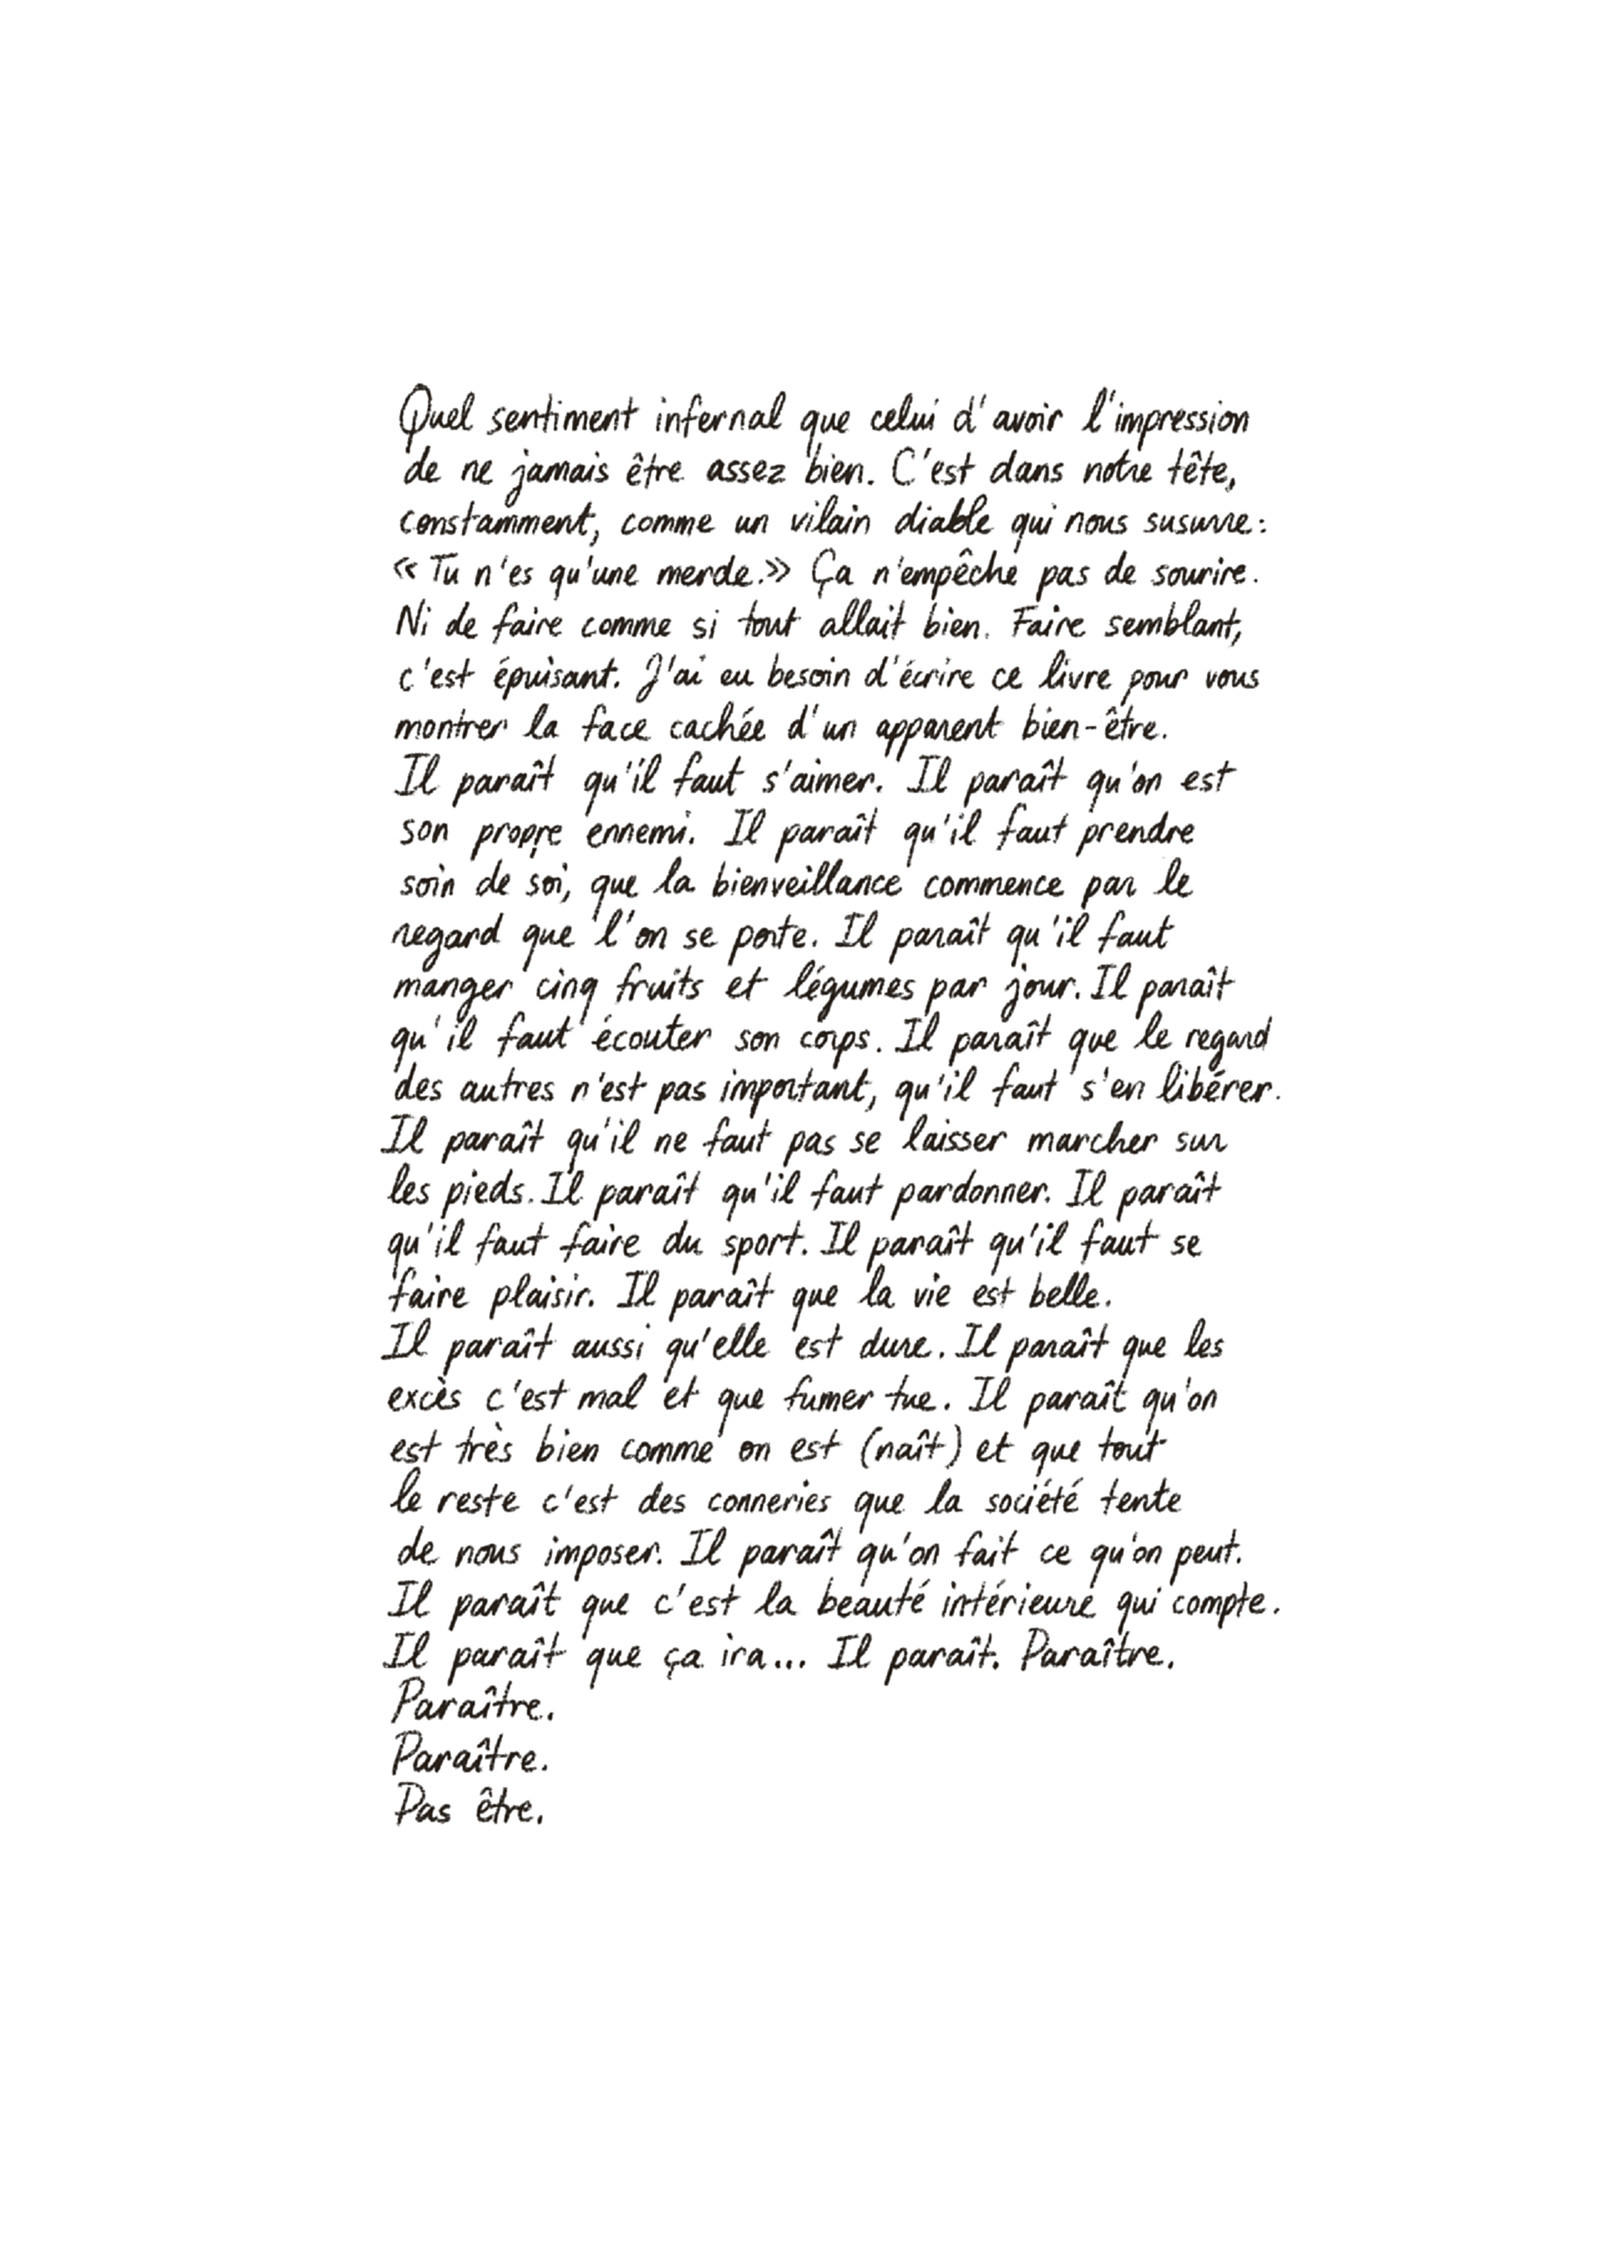 Quel sentiment infernal que celui d'avoir l'impression
de ne jamais être assez bien. C'est dans notre tête,
constamment, comme un vilain diable qui nous susurre :
« Tu n'es qu'une merde.» Ça n'empêche pas de sourire.
Ni de faire comme si tout allait bien. Faire semblant,
c'est épuisant. J'ai eu besoin d'écrire ce livre pour vous
montrer la face cachée d'un apparent bien-être.
Il paraît qu'il faut s'aimer. Il paraît qu'on est
son propre ennemi. Il paraît qu'il faut prendre
soin de soi, que la bienveillance commence par le
regard que l'on se porte. Il paraît qu'il faut
manger cinq fruits et légumes par jour. Il paraît
qu'il faut écouter son corps. Il paraît que le regard
des autres n'est pas important, qu'il faut s'en libérer.
Il paraît qu'il ne faut pas se laisser marcher sur
les pieds. Il paraît qu'il faut pardonner. Il paraît
qu'il faut faire du sport. Il paraît qu'il faut se
faire plaisir. Il paraît que la vie est belle.
Il paraît aussi qu'elle est dure. Il paraît que les
excès c'est mal et que fumer tue. Il paraît qu'on
est très bien comme on est (naît) et que tout
le reste c'est des conneries que la société tente
de nous imposer. Il paraît qu'on fait ce qu'on peut.
Il paraît que c'est la beauté intérieure qui compte.
Il paraît que ça ira... Il paraît. Paraître.
Paraître.
Paraître.
Pas être.